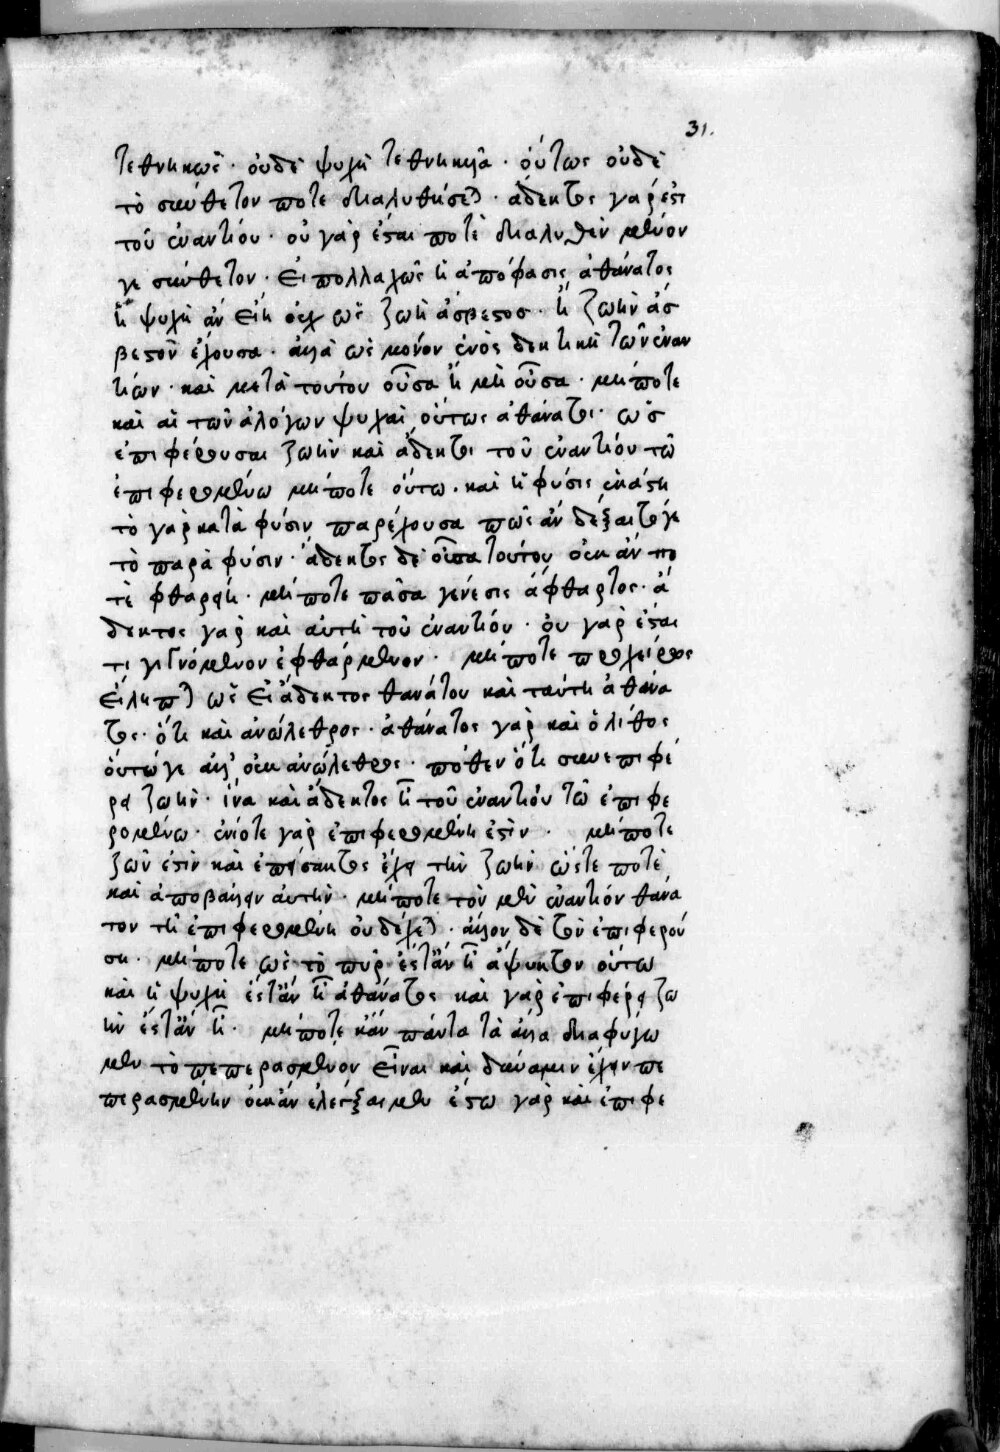 31.
τεθνηκώς · οὐδὲ ψυχὴ τεθνηκυῖα · οὕτως οὐδὲ
τὸ σύνθετον ποτε διαλυθήσεται · ἄδεκτος γάρ ἐστι
τοῦ ἐναντίου · οὐ γὰρ ἔσται ποτὲ διαλυθὲν μένον
γε σύνθετον · εἰ πολλαχῶς ἡ ἀπόφασις ἀθάνατος
ἡ ψυχὴ ἂν εἴη οὐχ ὡς ζωὴ ἄσβεστος · ἢ ζωὴν ἄσ
βεστον ἔχουσα · ἀλλὰ ὡς μόνον ἑνὸς δεκτικὴ τῶν ἐναν
τίων · καὶ μετὰ τούτου οὖσα ἢ μὴ οὖσα · μήποτε
καὶ αἱ τῶν ἀλόγων ψυχαὶ οὕτως ἀθάνατοι · ὡς
ἐπιφέρουσαι ζωὴν καὶ ἄδεκτοι τοῦ ἐναντίου τῶ
ἐπιφερομένω μήποτε οὕτω · καὶ ἡ φύσις ἑκάστη
τὸ γὰρ κατὰ φύσιν παρέχουσα πῶς ἂν δέξαιτό γε
τὸ παρὰ φύσιν · ἄδεκτος δὲ οὖσα τούτου οὐκ ἄν πο
τὲ φθαρείη · μήποτε πᾶσα γένεσις ἄφθαρτος · ἄ
δεκτος γὰρ καὶ αὐτὴ τοῦ ἐναντίου · οὐ γὰρ ἔσται
τι γιγνόμενον ἐφθάρμενον · μήποτε προχείρως
εἴληπται ὡς εἰ ἄδεκτος θανάτου καὶ ταύτη ἀθάνα
τος · ὅτι καὶ ἀνώλεθρος · ἀθάνατος γὰρ καὶ ὁ λίθος
οὕτω γε ἀλλ' οὐκ ἀνώλεθρος · πόθεν ὅτι συνεπιφέ
ρει ζωὴν · ἵνα καὶ ἄδεκτος ἦ τοῦ ἐναντίου τῶ ἐπιφε
ρομένω · ἐνίοτε γὰρ ἐπιφερομένη ἐστὶν · μήποτε
ζῶν ἐστὶν καὶ ἐπείσακτος ἔχει τὴν ζωὴν ὥστε ποτὲ
καὶ ἀποβαλεῖν αὐτὴν · μήποτε τὸν μὲν ἐναντίον θάνα
τον τῆ ἐπιφερομένη οὐ δέχεται · ἄλλον δὲ τὸν ἐπιφερού
ση · μήποτε ὡς τὸ πῦρ ἔστ' ἂν ἦ ἄψυκτον οὕτω
καὶ ἡ ψυχὴ ἔστ' ἂν ἦ ἀθάνατος καὶ γὰρ ἐπιφέρει ζω
ὴν ἔστ' ἂν ἦ · μήποτε κἂν πάντα τὰ ἄλλα διαφύγω
μεν τὸ πεπερασμένον εἶναι καὶ δύναμιν ἔχειν πε
περασμένην οὐκ ἂν ἐλέγξαιμεν ἔστω γὰρ καὶ ἐπιφέ